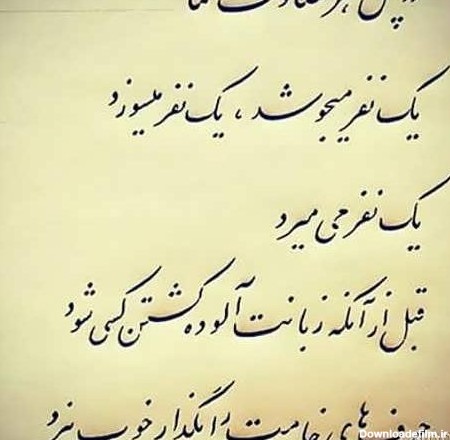 هر قضاوت
یک نفر میجوشد ، یک نفر میسوزد
یک نفر می میرد
قبل از آنکه زبانت آلوده کشتن کسی شود
حرف های خامت را بگذار خوب بپزد
Downloadefilm.ir